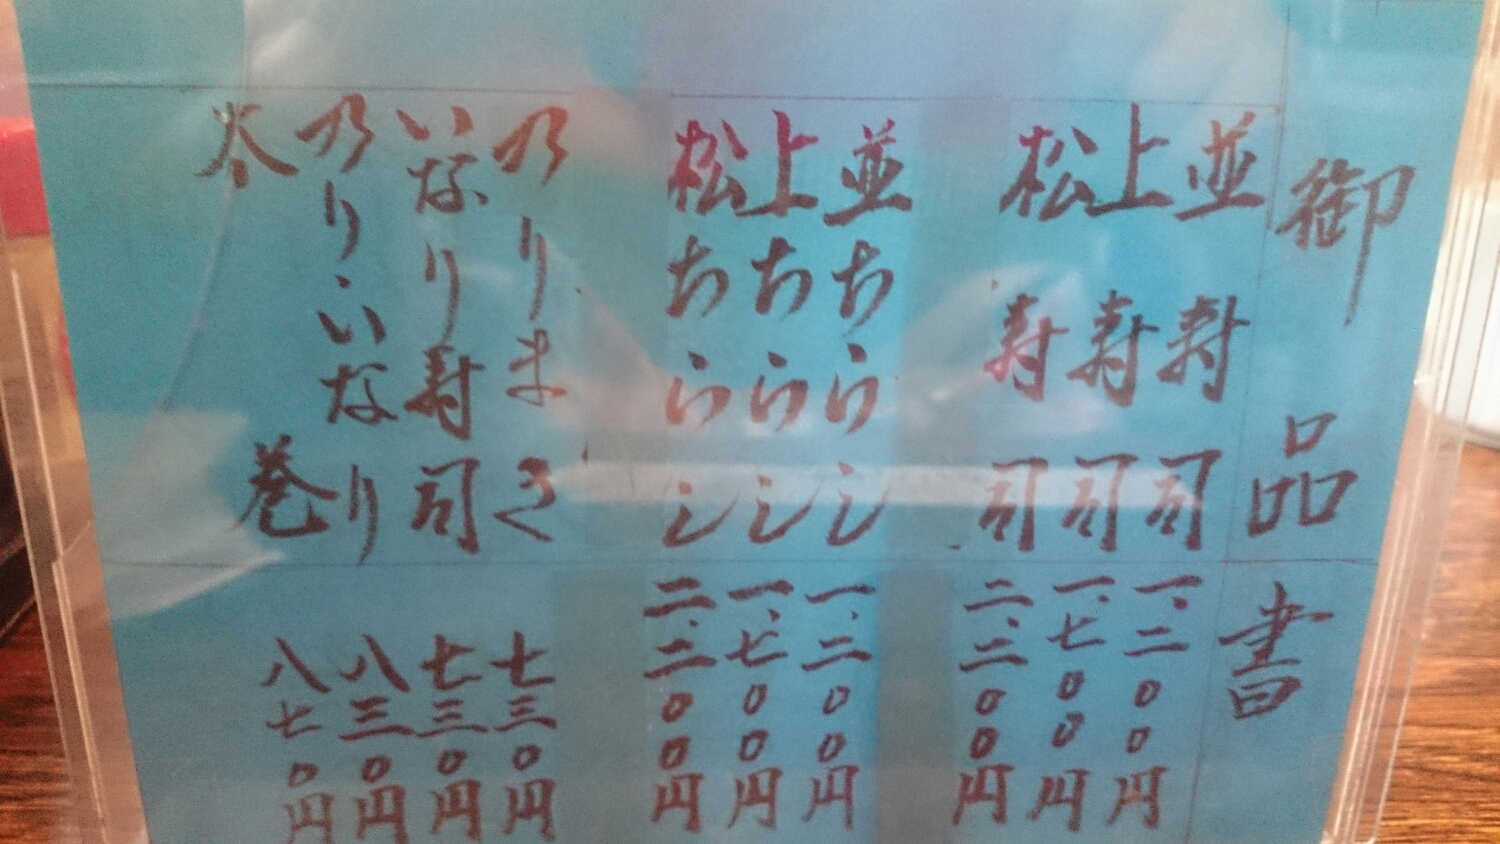 御品書
並寿司 一、二〇〇円
上寿司 一、七〇〇円
松寿司 二、二〇〇円
並ちらし 一、二〇〇円
上ちらし 一、七〇〇円
松ちらし 二、二〇〇円
のりまき 七三〇円
いなり寿司 七三〇円
のりいなり 八三〇円
太巻 八七〇円